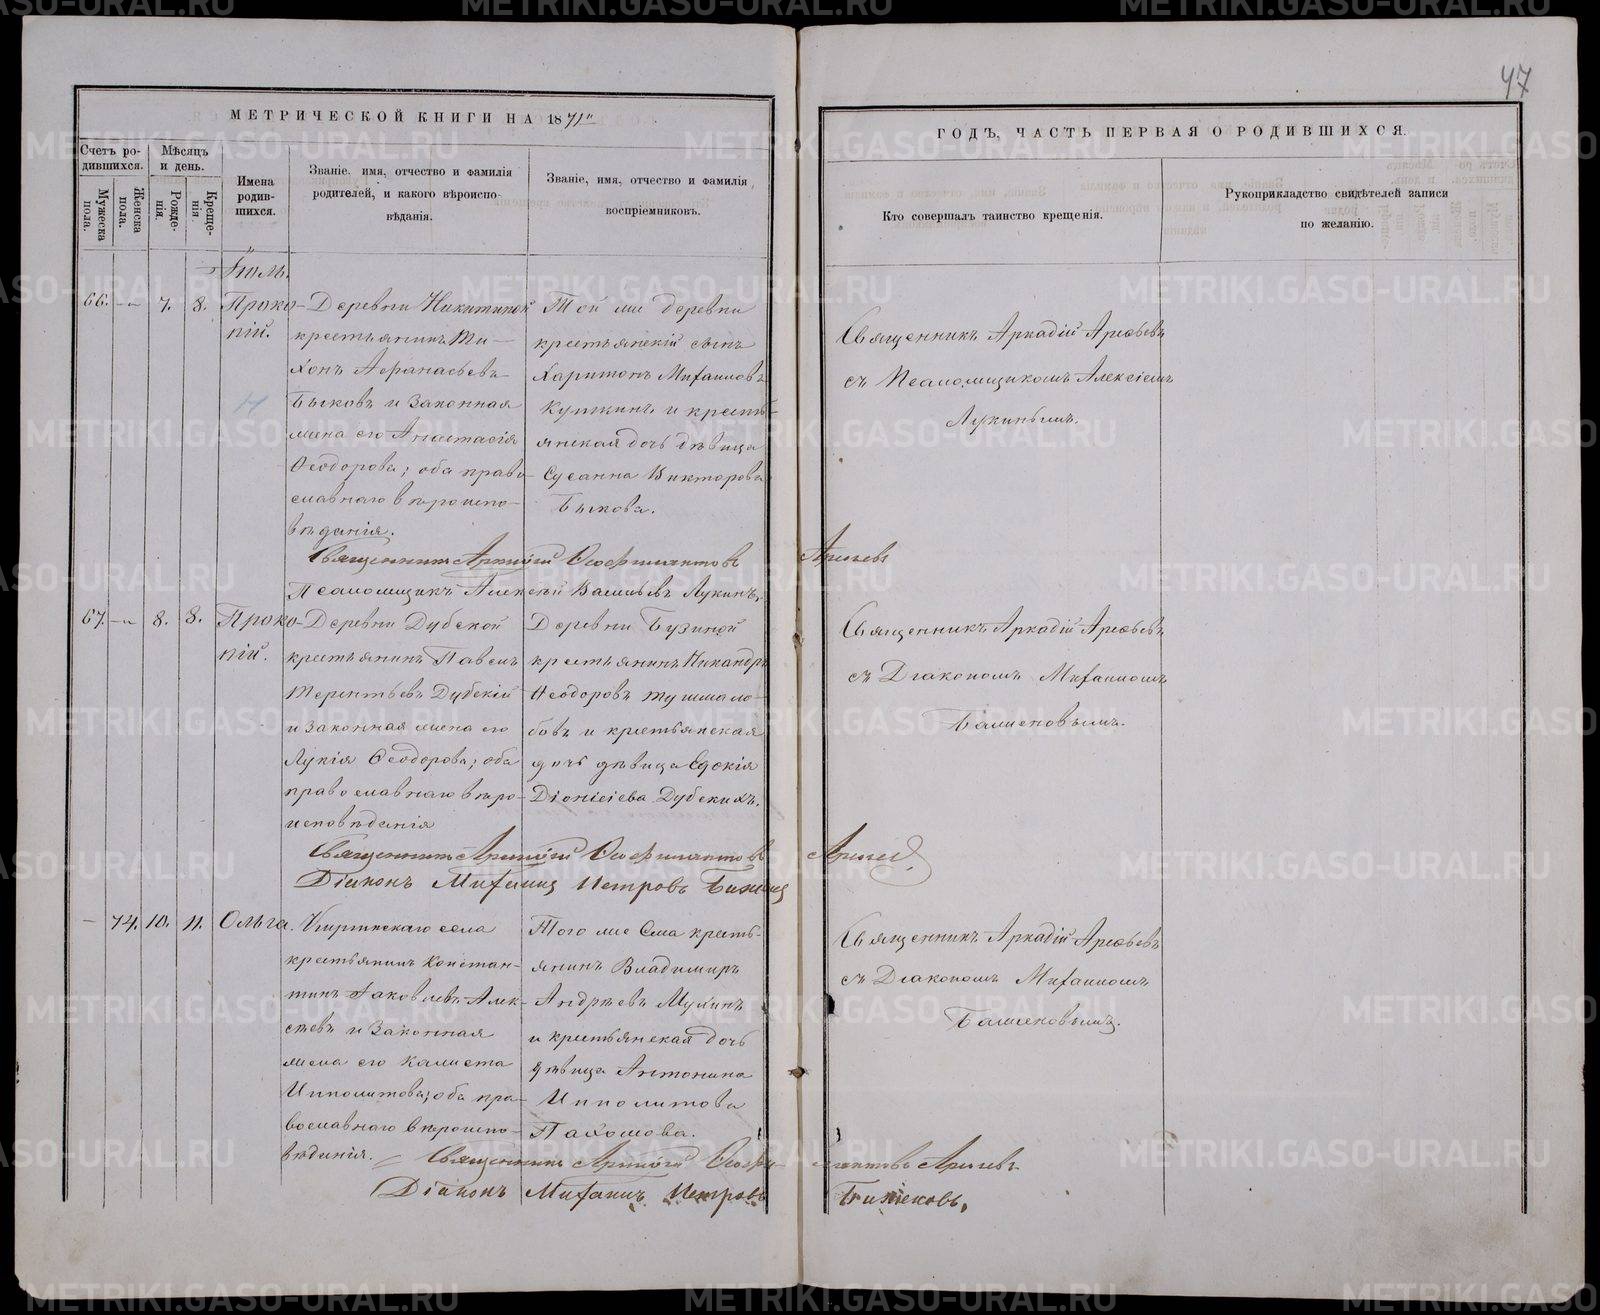 47
МЕТРИЧЕСКОЙ КНИГИ НА 1871
ГОДЪ, ЧАСТЬ ПЕРВАЯ О РОДИВШИХСЯ.
Счетъ ро-
дившихся.
Мужеска
пола.
Женска
пола.
Мѣсяцъ
и день.
Рожде-
нія.
Креще-
нія.
Имена
родив-
шихся.
Званіе, имя, отчество и фамилія
родителей, и какого вѣроиспо-
вѣданія.
Званіе, имя, отчество и фамилія
воспріемниковъ.
Кто совершалъ таинство крещенія.
Рукоприкладство свидѣтелей записи
по желанію.
Іюль.
66. 7. 8.
Проко-
пій.
Деревни Никитиной
крестьянинъ Ти-
хонъ Афанасьевъ
Быковъ и законная
жена его Анастасія
Ѳеодорова; оба право-
славнаго вѣроиспо-
вѣданія.
Той же деревни
крестьянскій сынъ
Харитонъ Михаиловъ
и кресть-
янская дочь дѣвица
Сусанна Викторова
Быкова.
Священникъ Аркадій Арефьевъ
съ Псаломщикомъ Алексіемъ
Лукинымъ.
Священникъ Аркадій Ѳеофилактовъ Арефьевъ
Псаломщикъ Алексѣй Васильевъ Лукинъ.
67. 8. 8.
Проко-
пій.
Деревни Дубской
крестьянинъ Павелъ
Терентьевъ Дубскій
и законная жена его
Лукія Ѳеодорова; оба
православнаго вѣро-
исповѣданія
Деревни Бузиной
крестьянинъ Никандръ
Ѳеодоровъ Тушноло-
бовъ и крестьянская
дочь дѣвица Евдокія
Діонисіева Дубскихъ.
Священникъ Аркадій Арефьевъ
съ Діакономъ Михаиломъ
Священникъ Аркадій Ѳеофилактовъ Арефьевъ.
Діаконъ Михаилъ Петровъ
74. 10. 11.
Ольга.
Киргинскаго села
крестьянинъ Констан-
тинъ Іаковлевъ Алек-
сѣевъ и законная
жена его Калиста
Ипполитова; оба пра-
вославнаго вѣроиспо-
вѣданія.
Того же села кресть-
янинъ Владимиръ
Андреевъ Мухинъ
и крестьянская дочь
дѣвица Антонина
Ипполитова
Пахомова.
Священникъ Аркадій Арефьевъ
съ Діакономъ Михаиломъ
Священникъ Аркадій Ѳеофилактовъ Арефьевъ
Діаконъ Михаилъ Петровъ
METRIKI.GASO-URAL.RU